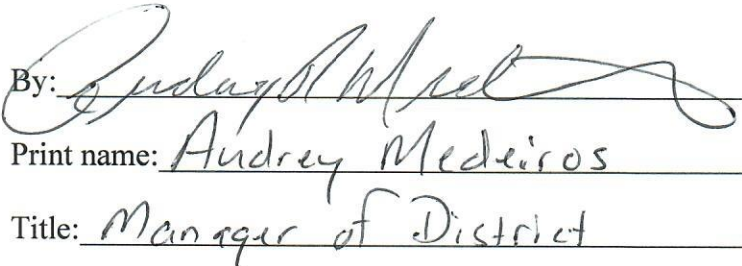 By:
Print name: Audrey Medeiros
Title: Manager of District